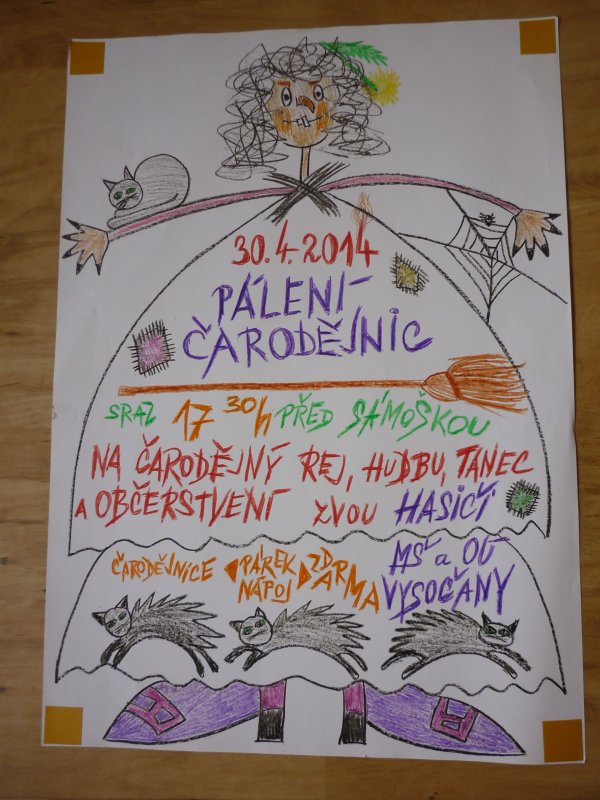 30.4.2014
PÁLENÍ
ČARODĚJNIC
SRAZ 17 30h PŘED SÁMOŠKOU
NA ČARODĚJNÝ REJ, HUDBU, TANEC
A OBČERSTVENÍ ZVOU HASIČI
MŠ a OÚ
ČARODĚJNICE PÁREK ZDARMA VYSOČANY
NÁPOJ